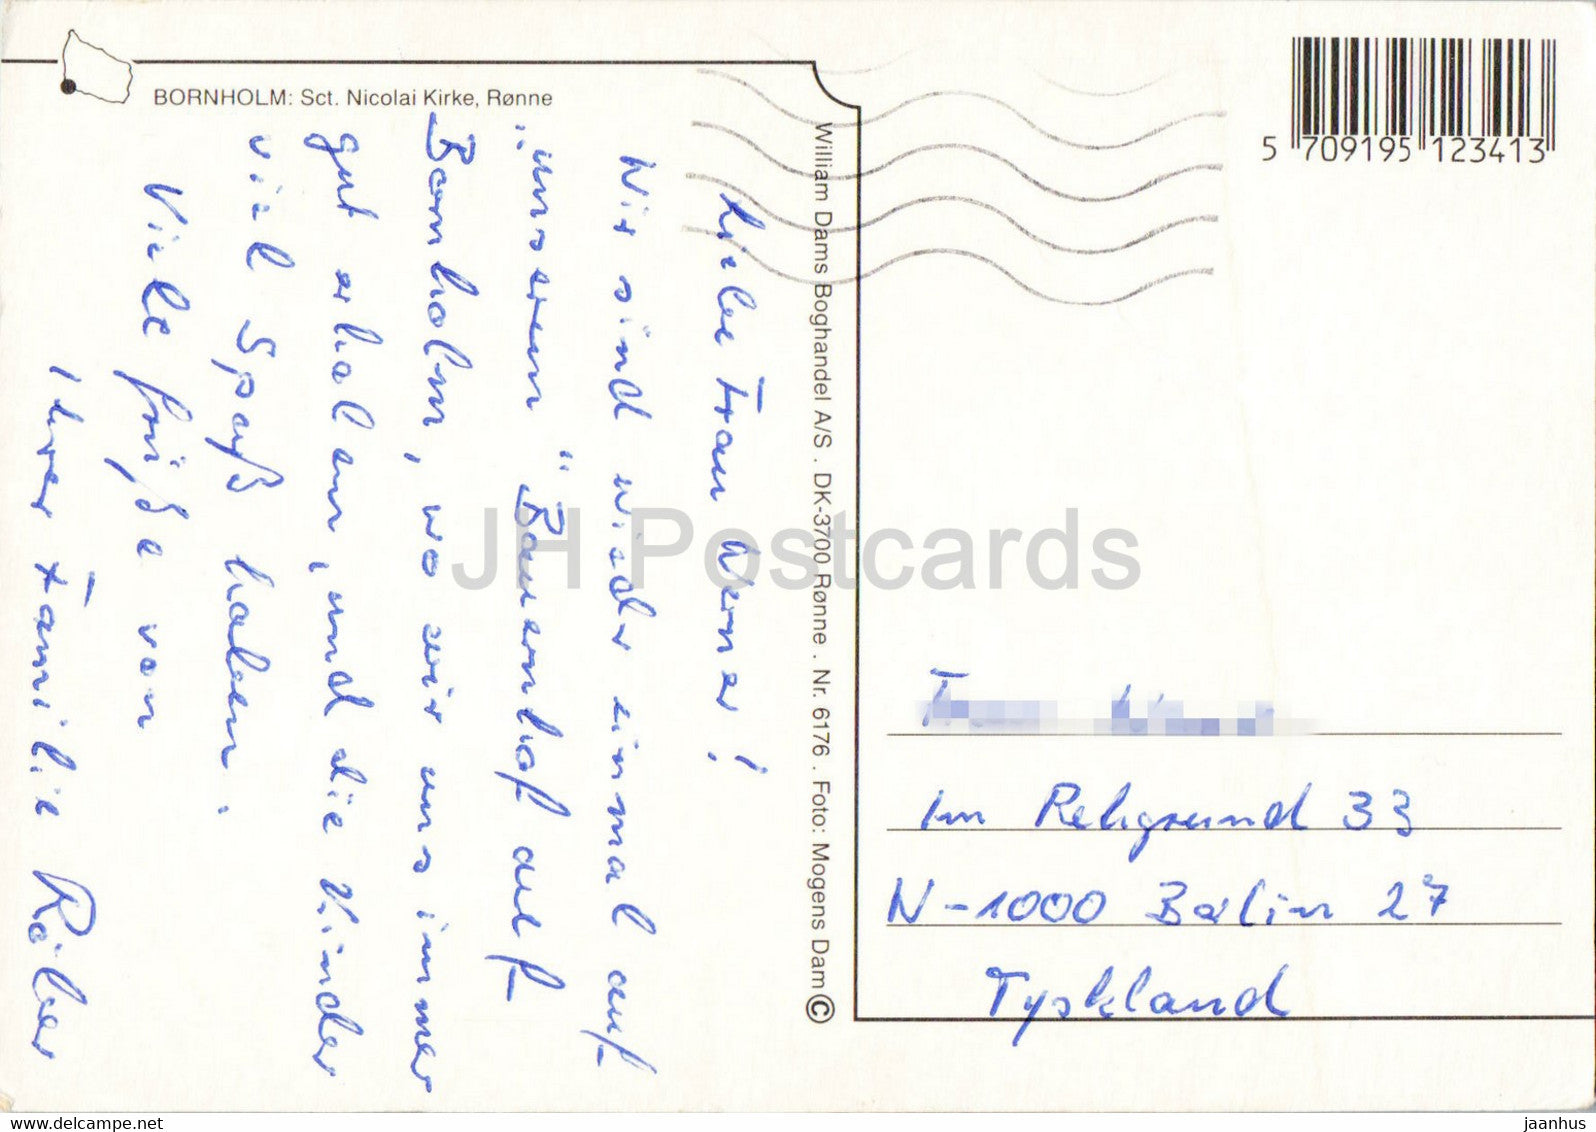 BORNHOLM: Sct. Nicolai Kirke, Rønne
Liebe Frau Werner!
Wir sind wieder einmal auf
„unserem" Bauernhof auf
Bornholm, wo wir uns immer
gut erholen, und die Kinder
viel Spaß haben.
Viele Grüße von
Ihrer Familie
William Dams Boghandel A/S . DK-3700 Rønne . Nr. 6176 . Foto: Mogens Dam ©
5 709195 123413
Im Rehgrund 33
N-1000 Berlin 27
Tyskland
JH Postcards
www.delcampe.net
jaanhus